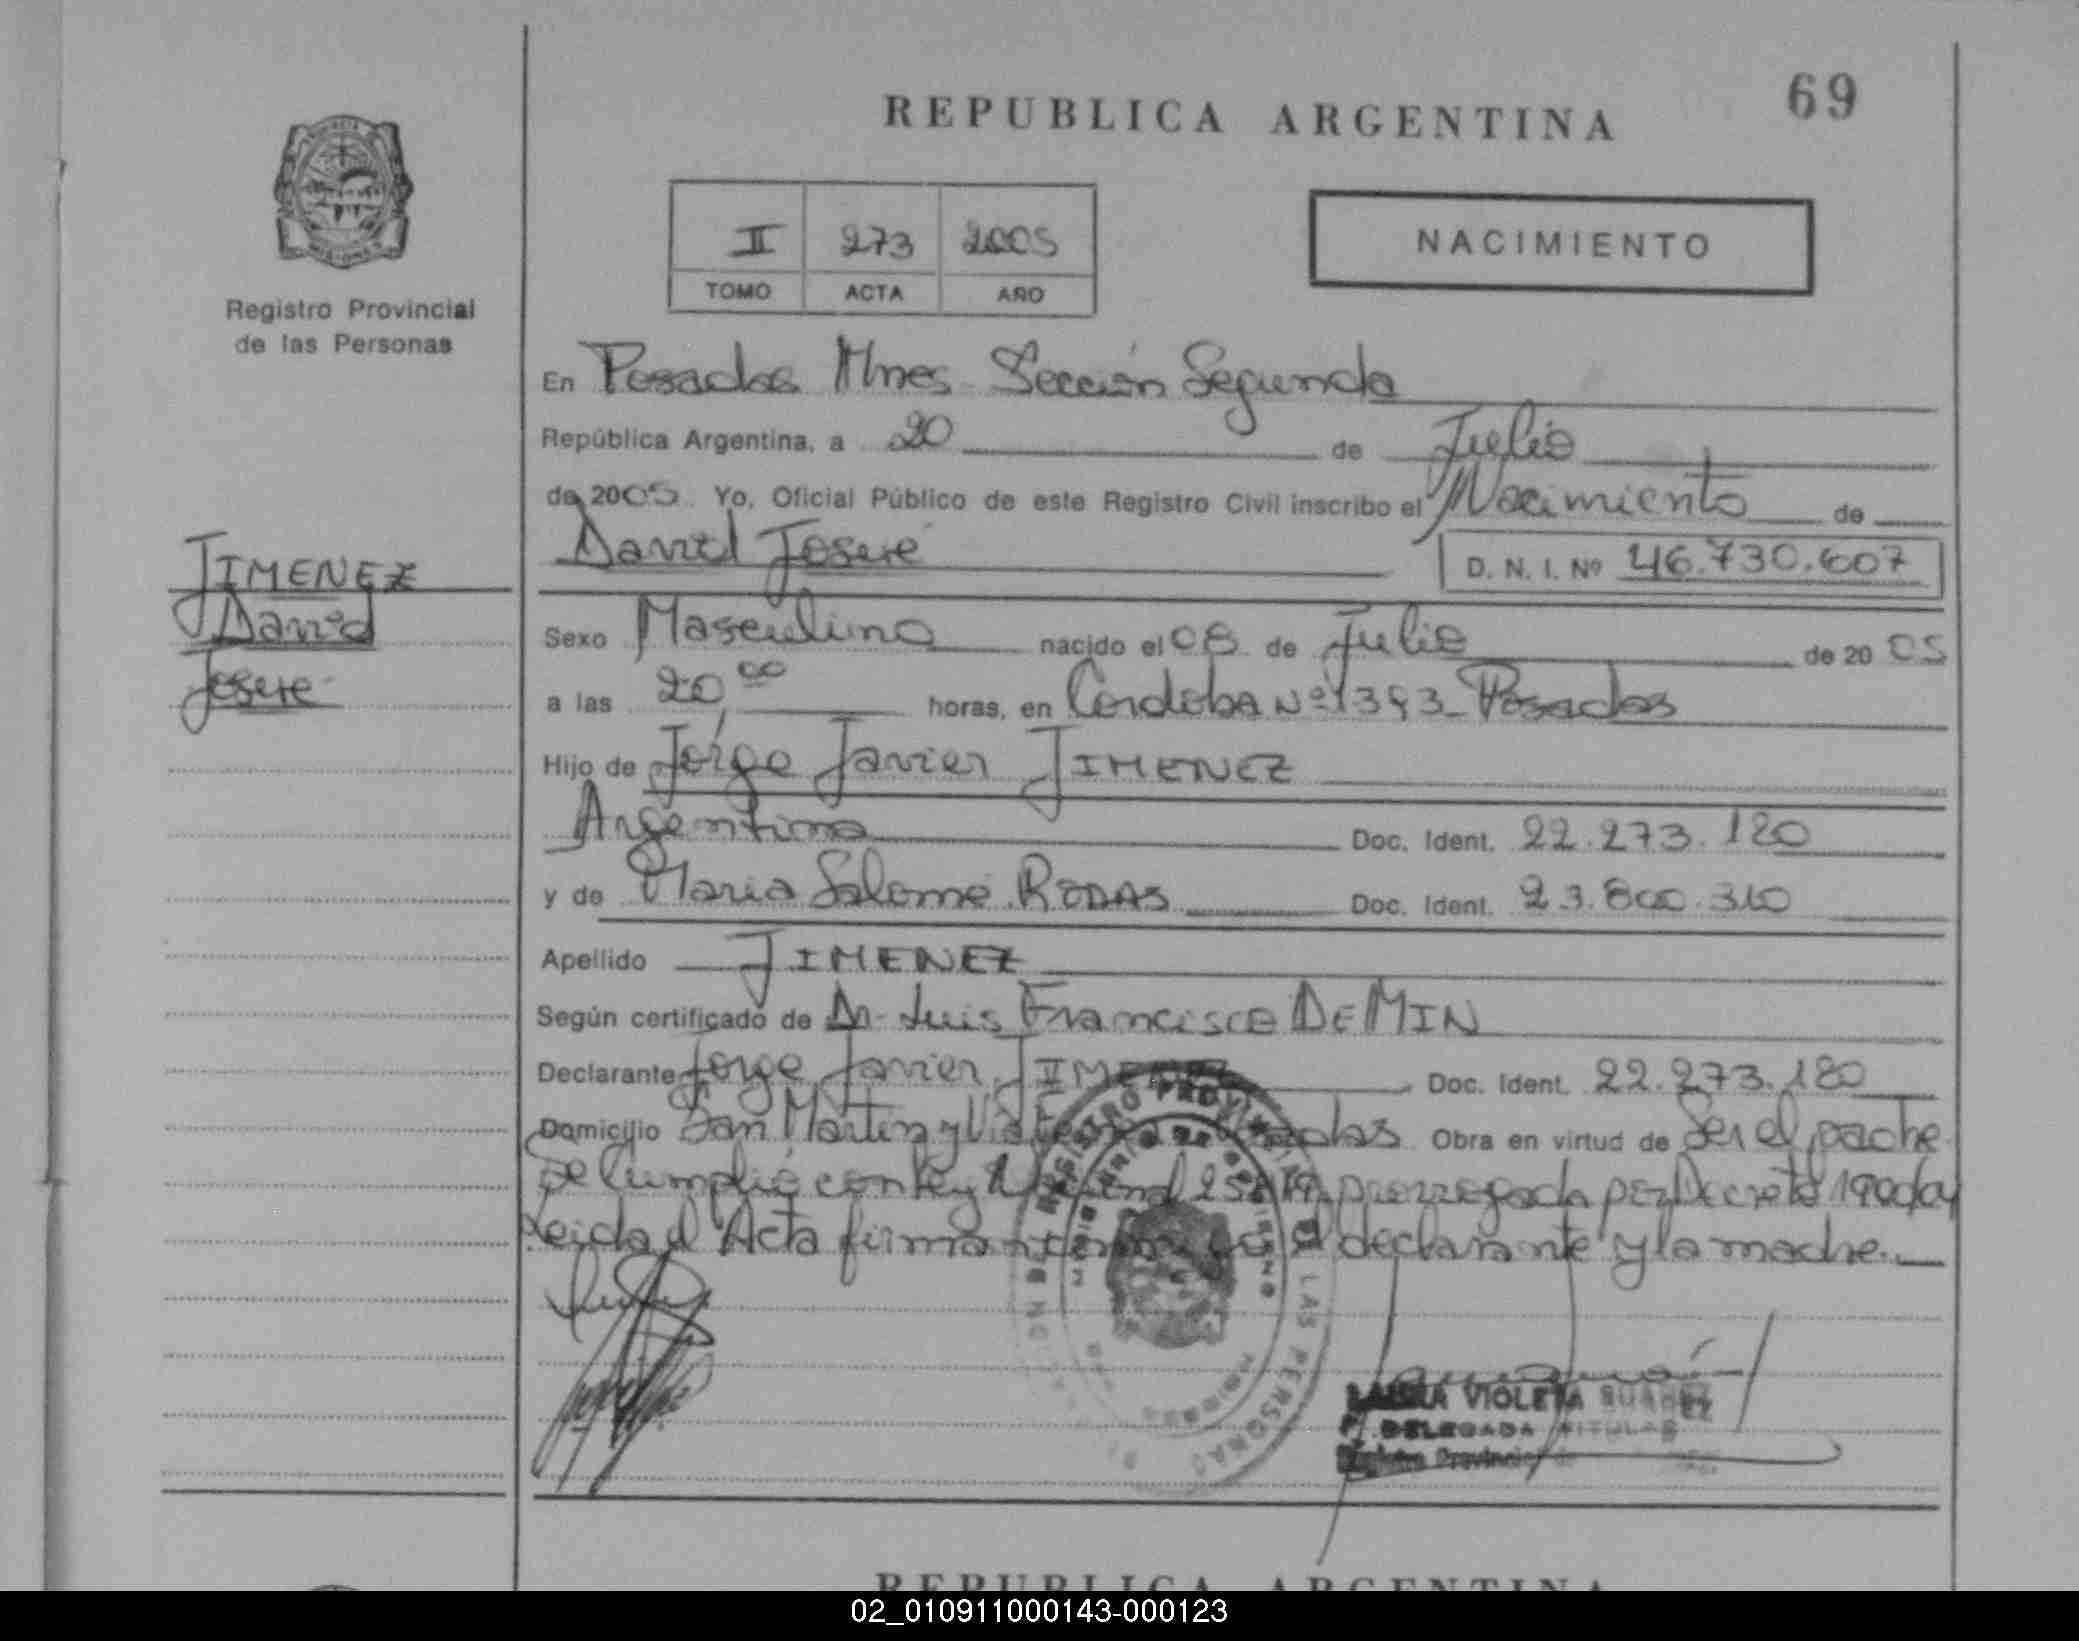 REPUBLICA ARGENTINA
69
II 273 2005
TOMO ACTA AÑO
NACIMIENTO
Registro Provincial
de las Personas
En Posadas Mnes Sección Segunda
República Argentina, a 20 de Julio
de 2005 Yo, Oficial Público de este Registro Civil inscribo el Nacimiento de
David Josue D. N. I. Nº 46.730.607
JIMENEZ
David
Josue
Sexo Masculino nacido el 08 de Julio de 2005
a las 20,00 horas, en Cordoba Nº 1393 Posadas
Hijo de Jorge Javier JIMENEZ
Argentino Doc. Ident. 22.273.180
y de Maria Salomé RODAS Doc. Ident. 23.800.310
Apellido JIMENEZ
Según certificado de Dr. Luis Francisco DE MIN
Declarante Jorge Javier JIMENEZ Doc. Ident. 22.273.180
Domicilio San Martin y Posadas Obra en virtud de Ser el padre
Se Cumplió con Ley Nacional prorrogada por Decreto
Leida el Acta firman el declarante y la madre.
REGISTRO PROVINCIAL DE LAS PERSONAS
LAURA VIOLETA SUAREZ
DELEGADA TITULAR
Registro Provincial de
REPUBLICA ARGENTINA
02_010911000143-000123